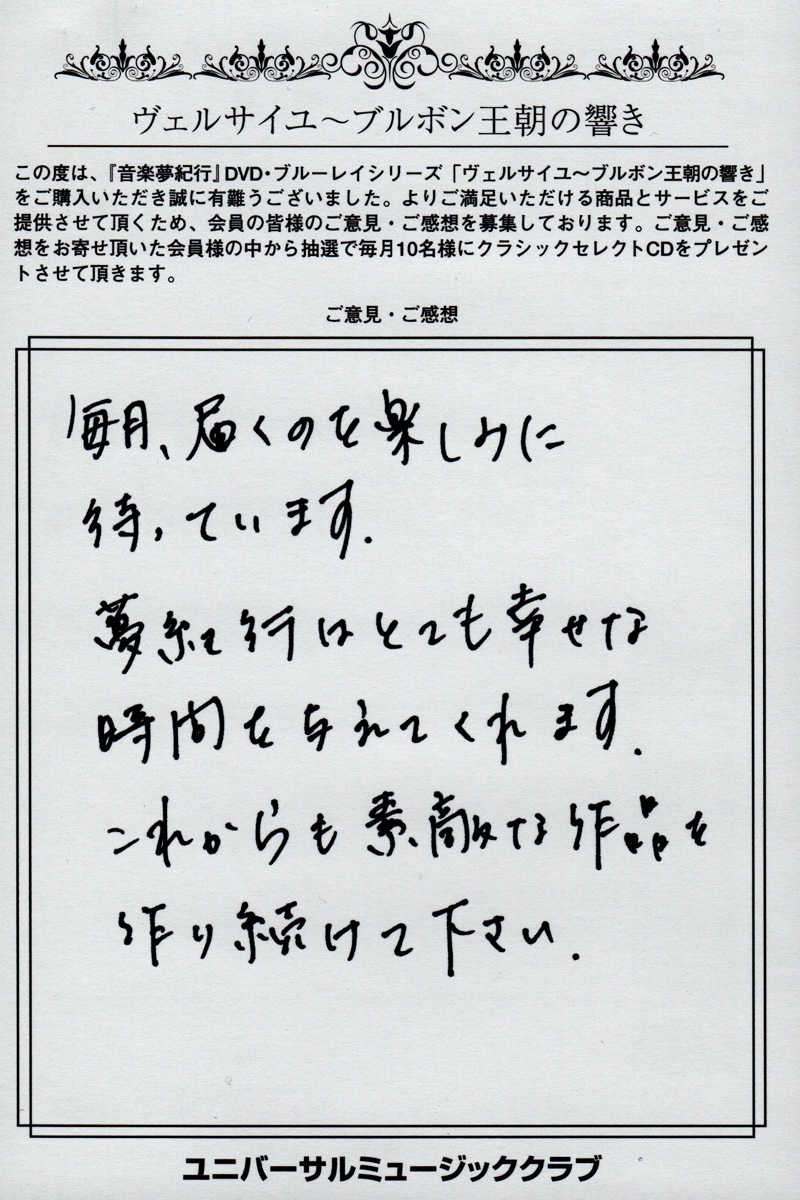 ヴェルサイユ～ブルボン王朝の響き
この度は、『音楽夢紀行』DVD・ブルーレイシリーズ「ヴェルサイユ～ブルボン王朝の響き」
をご購入いただき誠に有難うございました。よりご満足いただける商品とサービスをご
提供させて頂くため、会員の皆様のご意見・ご感想を募集しております。ご意見・ご感
想をお寄せ頂いた会員様の中から抽選で毎月10名様にクラシックセレクトCDをプレゼン
トさせて頂きます。
ご意見・ご感想
毎月、届くのを楽しみに
待っています.
夢紀行はとても幸せな
時間を与えてくれます.
これからも素敵な作品を
作り続けて下さい.
ユニバーサルミュージッククラブ